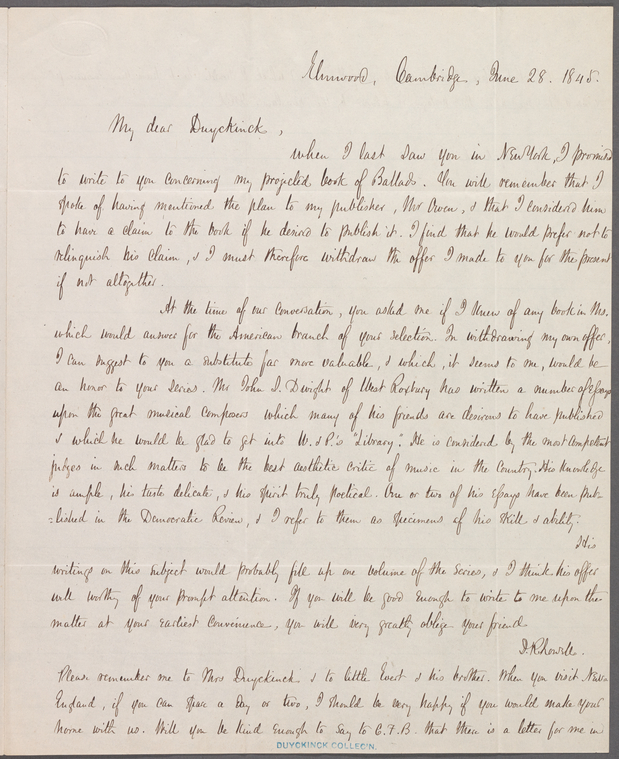 Elmwood, Cambridge, June 28. 1845.
My dear Duyckinck,
when I last saw you in New York, I promised
to write to you concerning my projected book of Ballads. You will remember that I
spoke of having mentioned the plan to my publisher, Mr Owen, & that I considered him
to have a claim to the book if he desired to publish it. I find that he would prefer not to
relinquish his claim, & I must therefore withdraw the offer I made to you for the present
if not altogether.
At the time of our conversation, you asked me if I knew of any book in Ms.
which would answer for the American branch of your selection. In withdrawing my own offer,
I can suggest to you a substitute far more valuable, & which, it seems to me, would be
an honor to your series. Mr John S. Dwight of West Roxbury has written a number of Essays
upon the great musical composers which many of his friends are desirous to have published
& which he would be glad to get into W. & P.'s "Library". He is considered by the most competent
judges in such matters to be the best aesthetic critic of music in the country. His knowledge
is ample, his taste delicate, & his spirit truly poetical. One or two of his Essays have been pub-
-lished in the Democratic Review, & I refer to them as specimens of his skill & ability.
His
writings on this subject would probably fill up one volume of the series, & I think his offer
well worthy of your prompt attention. If you will be good enough to write to me upon the
matter at your earliest convenience, you will very greatly oblige your friend
J. R. Lowell.
Please remember me to Mrs Duyckinck & to little Evert & his brother. When you visit New
England, if you can spare a day or two, I should be very happy if you would make your
home with us. Will you be kind enough to say to C. F. B. that there is a letter for me in
DUYCKINCK COLLEC'N.